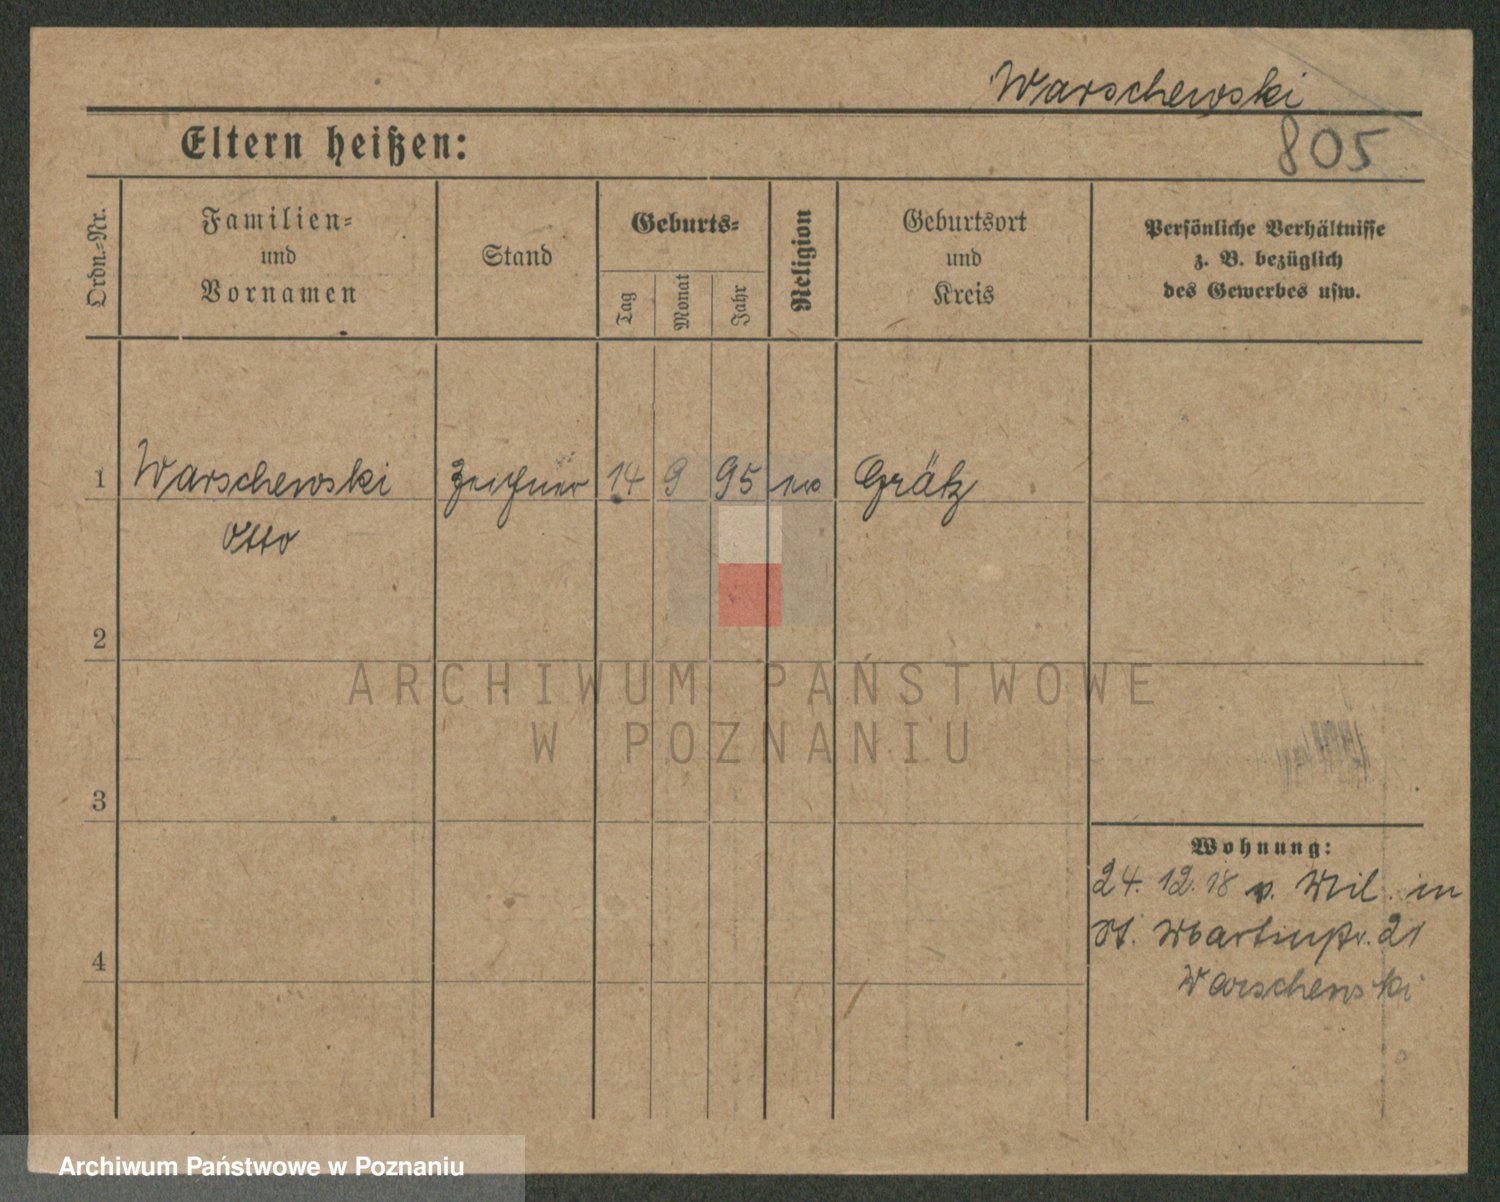 Warschewski
805
Eltern heißen:
Ordn.-Nr.
Familien-
und
Vornamen
Stand
Geburts-
Tag
Monat
Jahr
Religion
Geburtsort
und
Kreis
Persönliche Verhältnisse
z. B. bezüglich
des Gewerbes usw.
1 Warschewski Zeichner 14 9 95 Grätz
Otto
2
3
4
Wohnung:
24. 12. 18 v. Mil. in
St. Martinstr. 21
Warschewski
ARCHIWUM PAŃSTWOWE
W POZNANIU
Archiwum Państwowe w Poznaniu